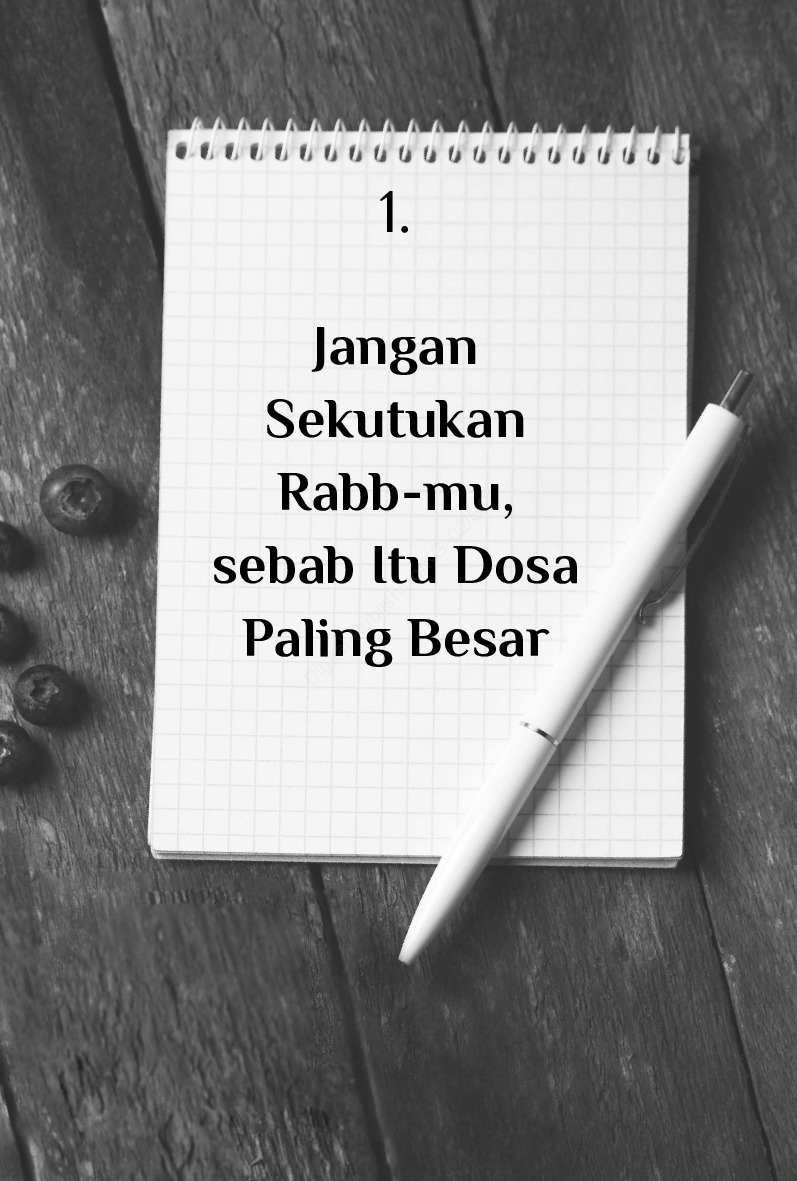 1.
Jangan
Sekutukan
Rabb-mu,
sebab Itu Dosa
Paling Besar